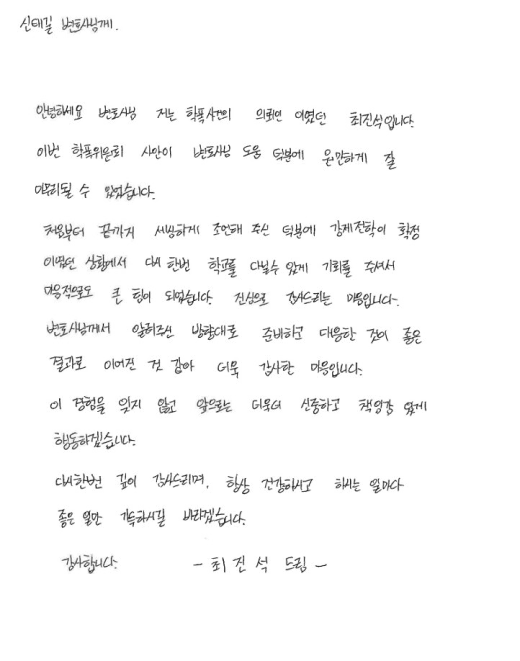 신태길 변호사님께.
안녕하세요 변호사님 저는 학폭사건의 의뢰인 이였던 최진석입니다.
이번 학폭위원회 사안이 변호사님 도움 덕분에 원만하게 잘
마무리될 수 있었습니다.
처음부터 끝까지 세밀하게 조언해 주신 덕분에 강제전학이 확정
이였던 상황에서 다시 한번 학교를 다닐수 있게 기회를 주셔서
마음적으로도 큰 힘이 되었습니다. 진심으로 감사드리는 마음입니다.
변호사님께서 알려주신 방향대로 준비하고 대응한 것이 좋은
결과로 이어진 것 같아 더욱 감사한 마음입니다.
이 경험을 잊지 않고 앞으로는 더욱더 신중하고 책임감 있게
행동하겠습니다.
다시한번 깊이 감사드리며, 항상 건강하시고 하시는 일마다
좋은 일만 가득하시길 바라겠습니다.
감사합니다. - 최 진 석 드림 -